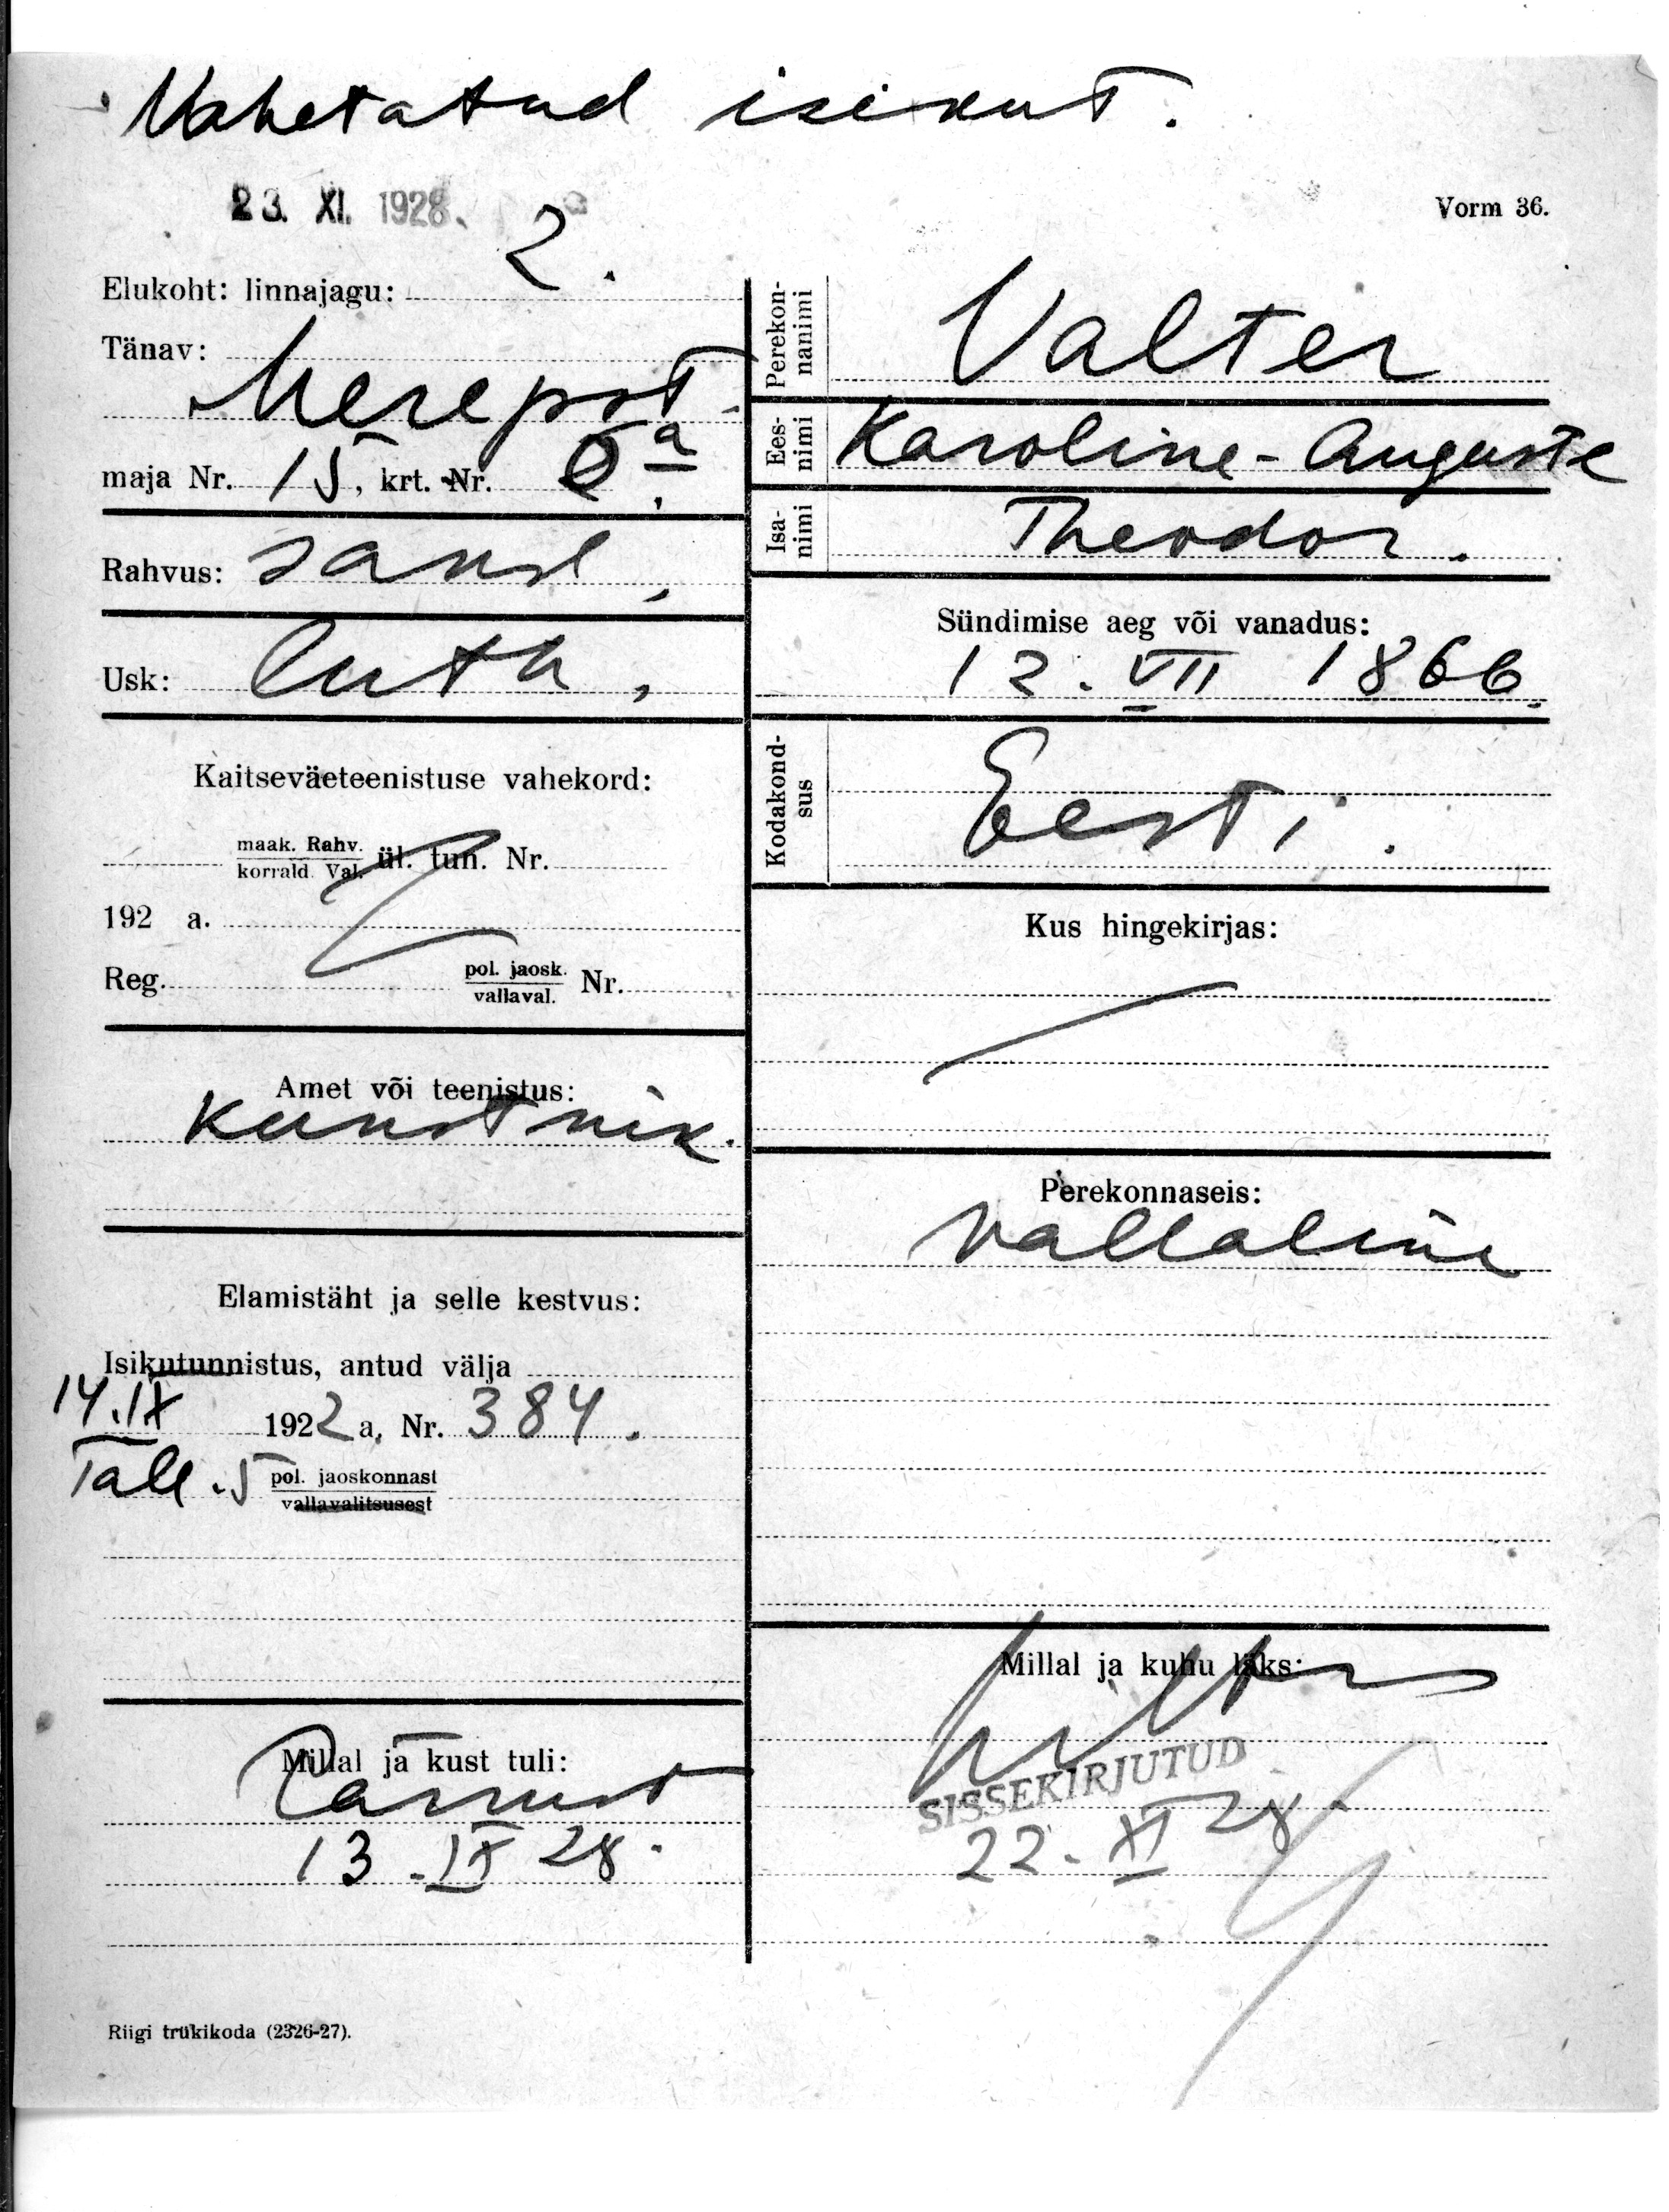 Vahetatud isikut.
23. XI. 1928.
Vorm 36.
Elukoht: linnajagu: 2.
Tänav:
Merepst
maja Nr. 15, krt. Nr.
Rahvus: saksl.
Usk: luth,
Kaitseväeteenistuse vahekord:
maak. Rahv.
korrald. Val. ül. tun. Nr.
192 a.
Reg. pol. jaosk. Nr.
vallaval.
Amet või teenistus:
Kunstnik.
Elamistäht ja selle kestvus:
Isikutunnistus, antud välja
14.IX 1922 a, Nr. 384.
Tall. 5 pol. jaoskonnast
vallavalitsusest
Millal ja kust tuli:
Pärnust
13.IX 28.
Riigi trükikoda (2326-27).
Perekon-
nanimi
Valter
Ees-
nimi
Karoline-Auguste
Isa-
nimi
Theodor.
Sündimise aeg või vanadus:
12. VII 1866.
Kodakond-
sus
Eesti.
Kus hingekirjas:
Perekonnaseis:
Vallaline
Millal ja kuhu läks:
SISSEKIRJUTUD
22. XI 28